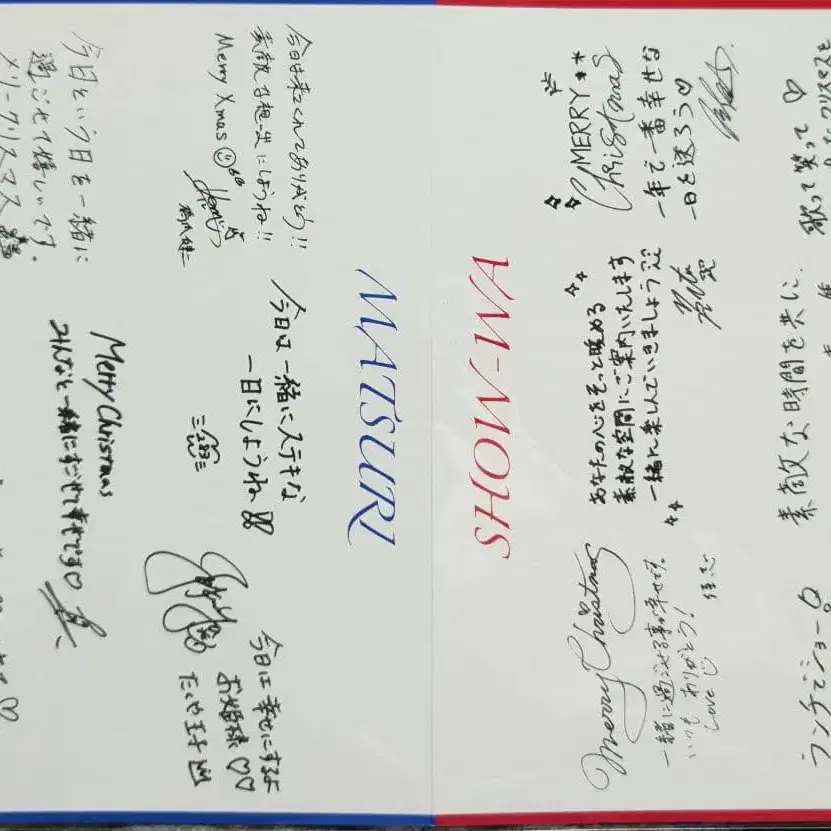 MATSURI
今日は来てくれてありがとう!!
素敵な想い出にしようね!!
Merry Xmas
今日は一緒にステキな
一日にしようね
今日は幸せにするよ
お姫様♡♡
たくや王子
今日という今日を一緒に
過ごせて嬉しいです。
メリークリスマス
Merry Christmas
みんなと一緒にすごせて幸せです♡
SHOW-WA
Merry Christmas
一緒に過ごせる事が幸せです。
いつもありがとう!
Love
あなたの心をそっと暖める
素敵な空間にご案内いたします
一緒に楽しんでいきましょう
MERRY
Christmas
一年で一番幸せな
一日を送ろう♡
ランチでショー
素敵な時間を共に.
歌って笑って♡